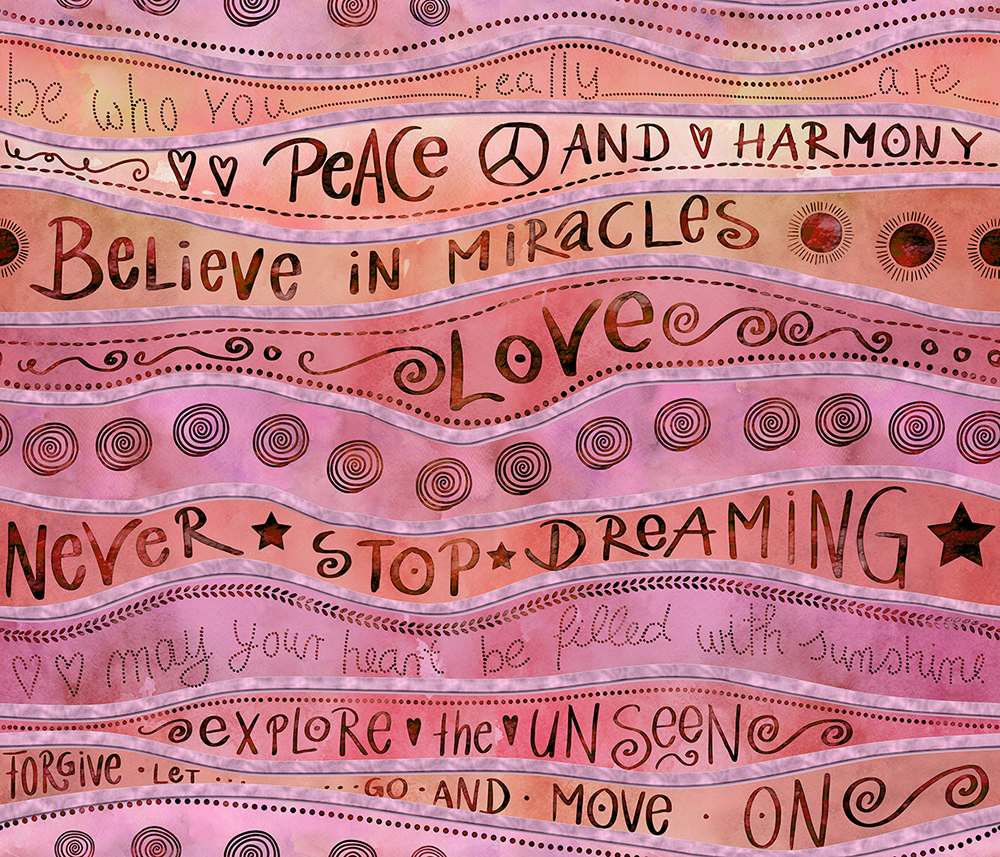 be who you really are
PeACe AND HARMONY
BeLieve iN MiRaCLeS
LOVe
NeVeR STOP DReAMiNG
may your heart be filled with sunshine
eXPLORe the UNSeeN
FORGiVe · LeT ... ...GO · AND · MOVe · ON